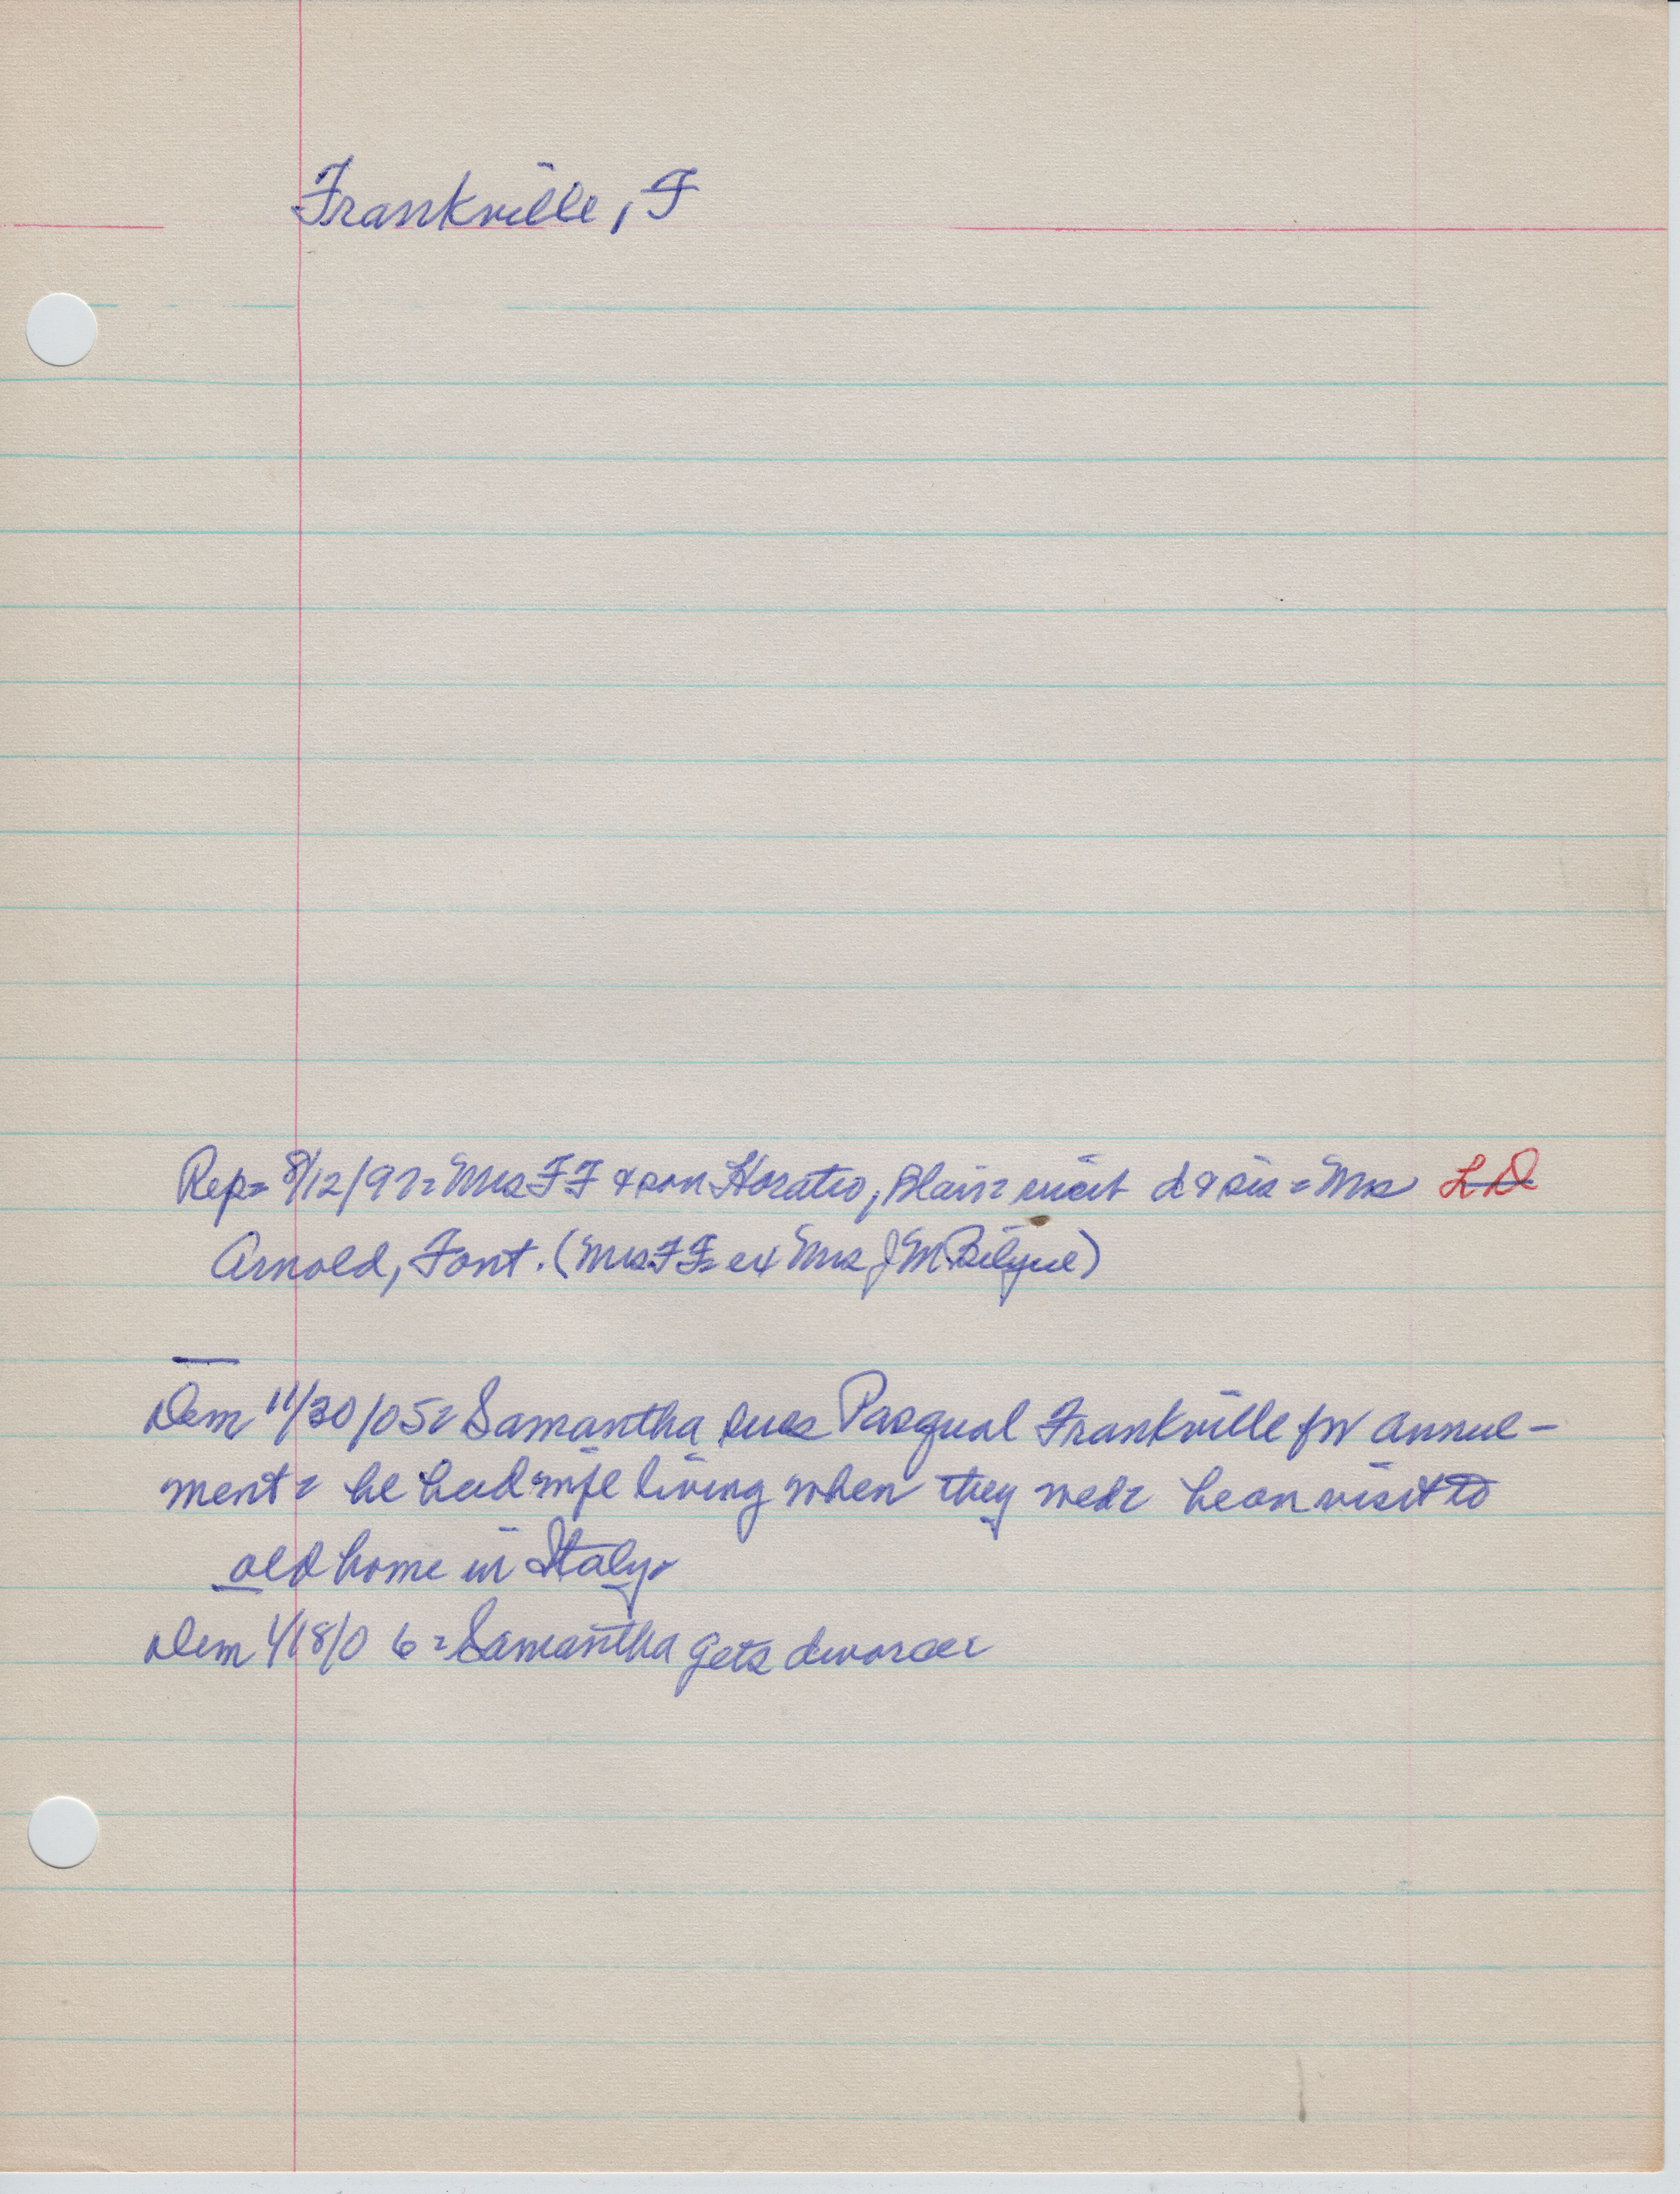 Frankville, F
Rep= 8/12/97= Mrs FF & son Horatio, Blair= visit d & sis = Mrs LD
Arnold, Font. (Mrs FF= ex Mrs J M Bilyeu)
Dem 11/30/05= Samantha sues Pasqual Frankville for annul-
ment= he had wife living when they wed= he on visit to
old home in Italy.
Dem 4/18/06= Samantha gets divorce